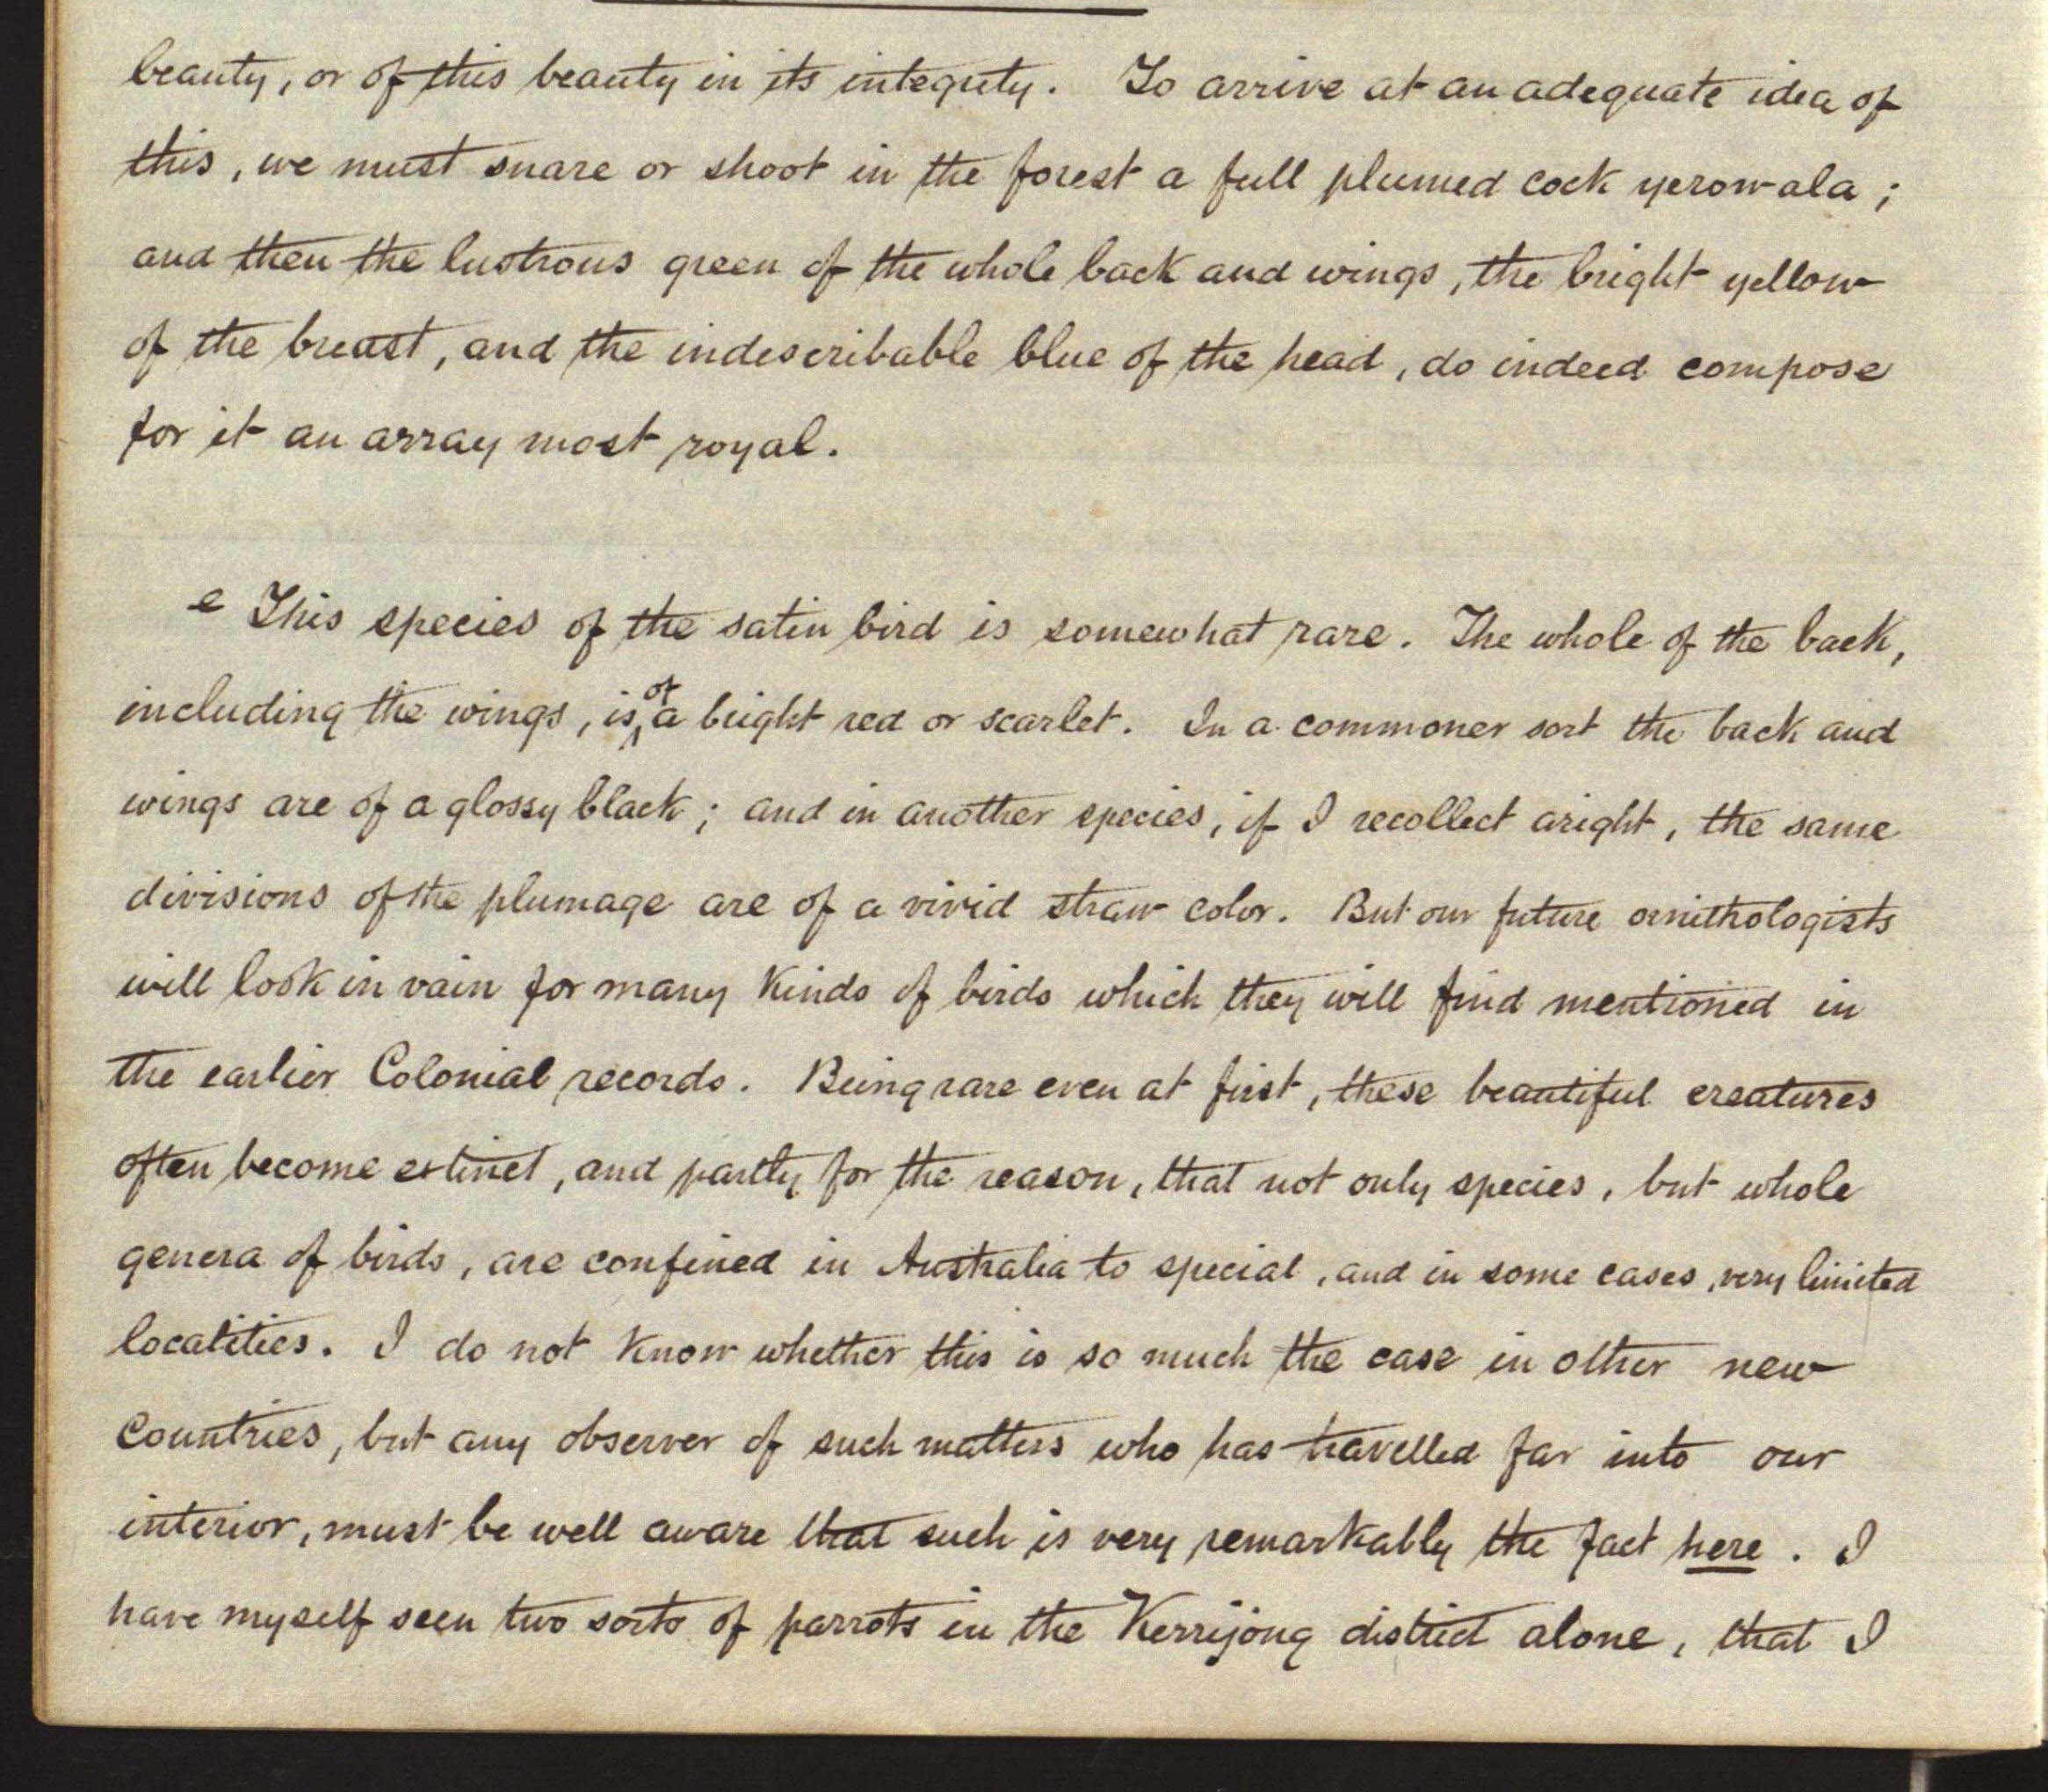 beauty, or of this beauty in its integrity. To arrive at an adequate idea of
this, we must snare or shoot in the forest a full plumed cock yerowala;
and then the lustrous green of the whole back and wings, the bright yellow
of the breast, and the indescribable blue of the head, do indeed compose
for it an array most royal.
e This species of the satin bird is somewhat rare. The whole of the back,
including the wings, is of a bright red or scarlet. In a commoner sort the back and
wings are of a glossy black; and in another species, if I recollect aright, the same
divisions of the plumage are of a vivid straw color. But our future ornithologists
will look in vain for many kinds of birds which they will find mentioned in
the earlier Colonial records. Being rare even at first, these beautiful creatures
often become extinct, and partly for the reason, that not only species, but whole
genera of birds, are confined in Australia to special, and in some cases, very limited
localities. I do not know whether this is so much the case in other new
Countries, but any observer of such matters who has travelled far into our
interior, must be well aware that such is very remarkably the fact here. I
have myself seen two sorts of parrots in the Kerrijong district alone, that I